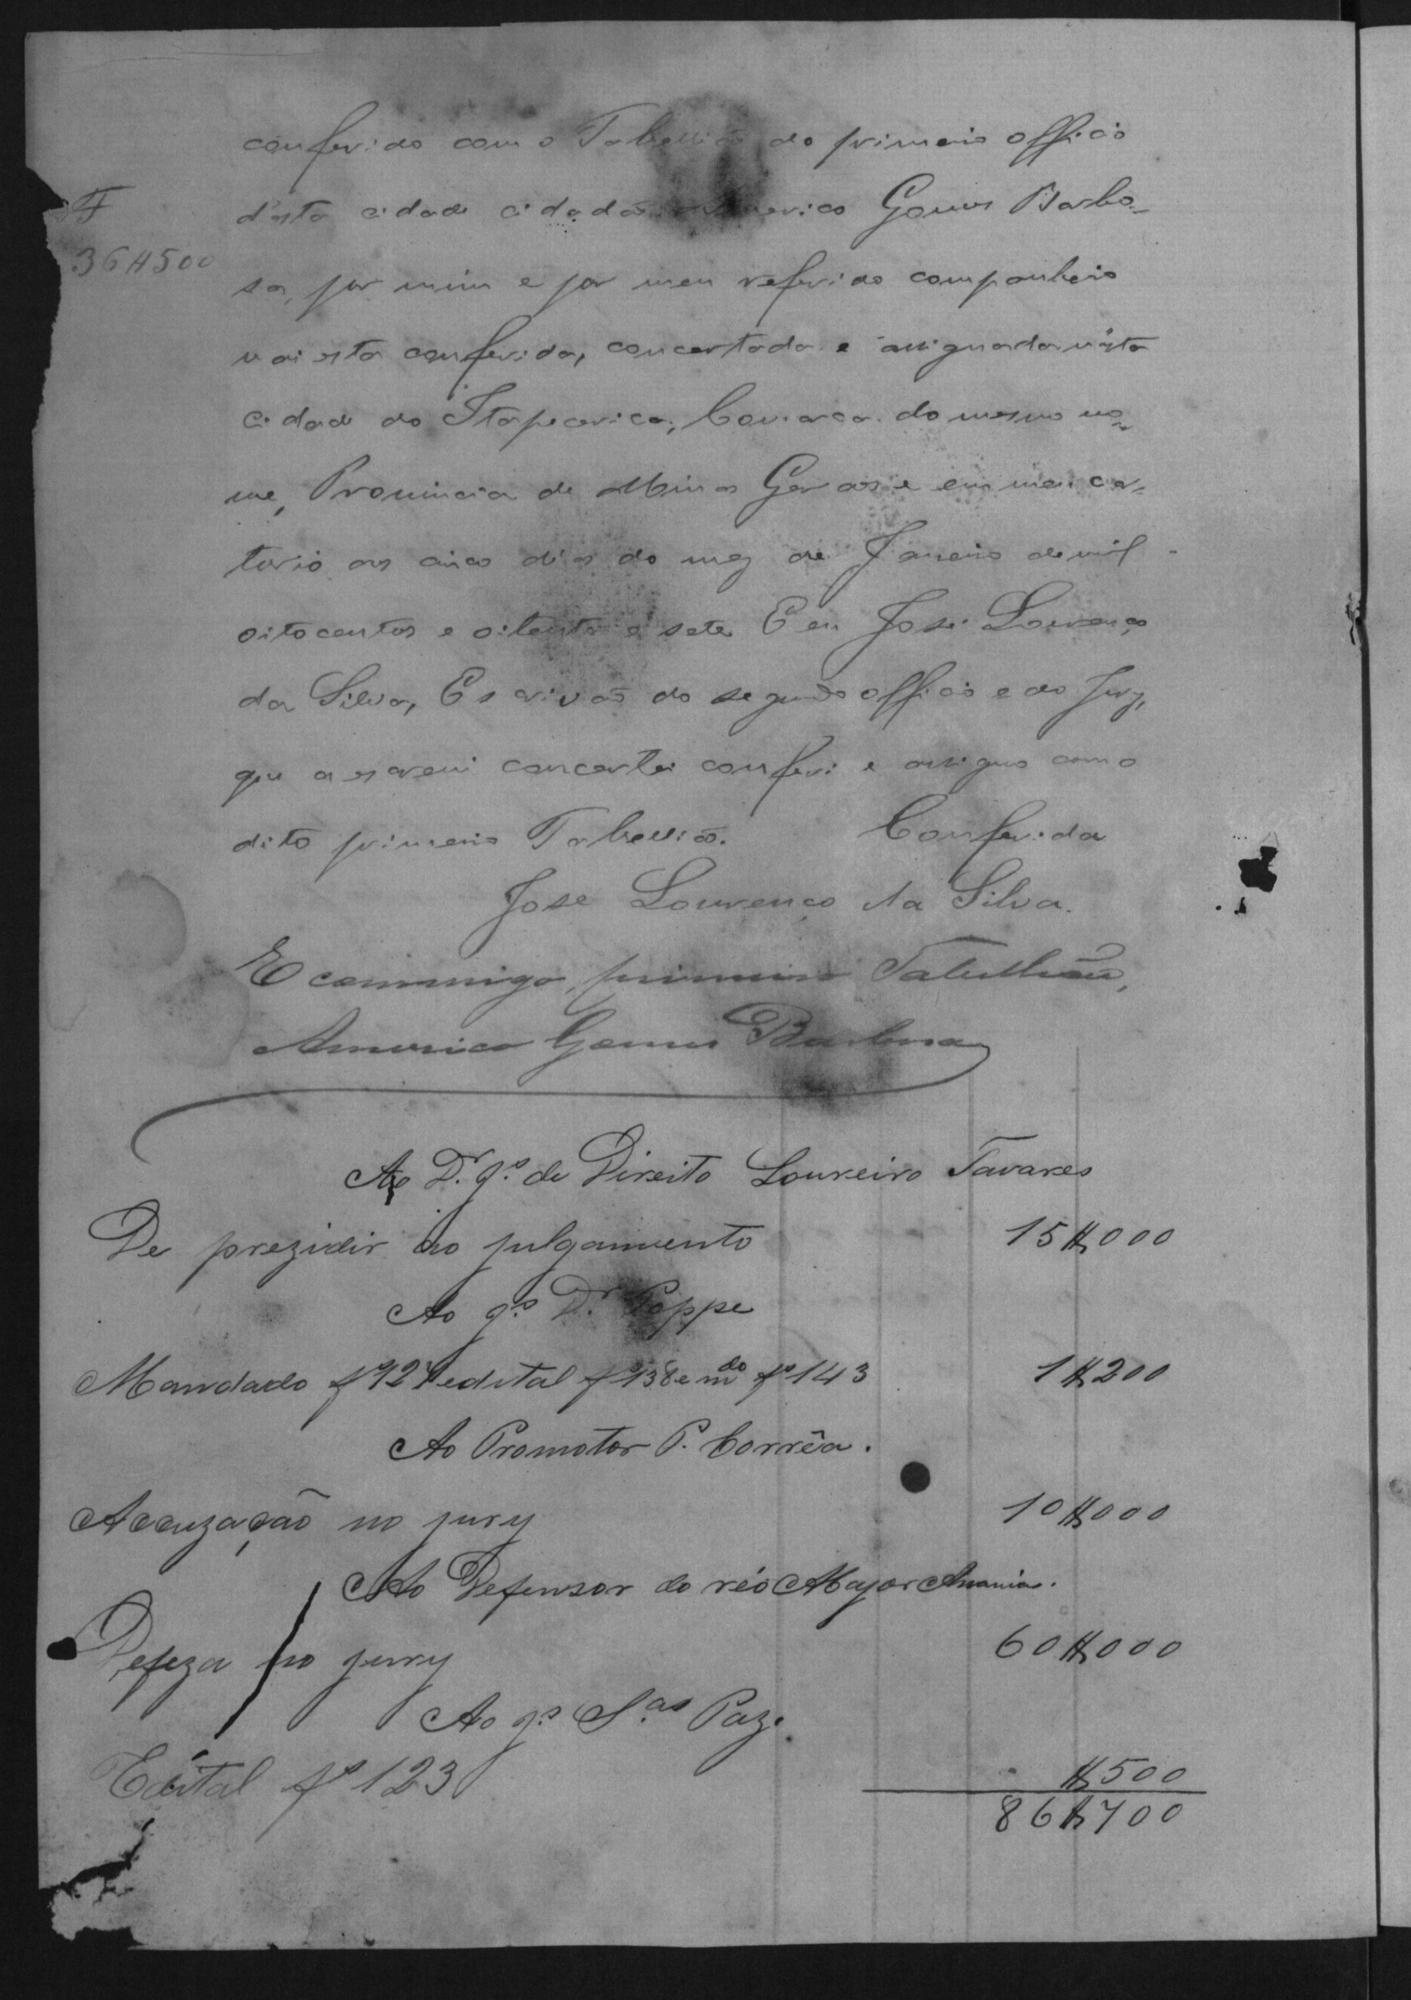 conferido com o Tabellião do primeiro officio
F
d'esta cidade cidadão Americo Gomes Barbo-
36$500
sa, por mim e por meu referido companheiro
vai esta conferida, concertada e assignada n'esta
cidade do Itapecerica, Comarca do mesmo no-
me, Provincia de Minas Geraes e em meu car-
torio aos cinco dias do mez de Janeiro de mil
oitocentos e oitenta e sete. E eu José Lourenço
da Silva, Escrivão do segundo officio e do Jury,
que a escrevi concertei conferi e assigno com o
dito primeiro Tabellião. Conferida
José Lourenço da Silva.
E commigo, primeiro Tabellião,
Americo Gomes Barbosa
Ao Dr. Js. de Direito Loureiro Tavares
De prezidir ao julgamento 15$000
Ao Js. Dr. Poppe
Mandado fs 121 edital fs 138 e mdo fs 143 1$200
Ao Promotor P. Corrêa.
Accuzação no jury 10$000
Ao Defensor do réo Major Anania.
Defeza no jury 60$000
Ao Js. Paz.
Edital fs 123 $500
86$700